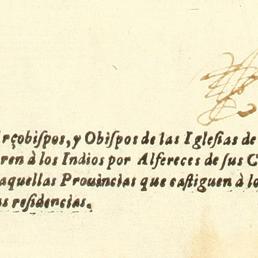 rçobispos, y Obispos de las Iglesias de
ren à los Indios por Alfereces de sus C
aquellas Prouincias que castiguen à lo
s residencias.